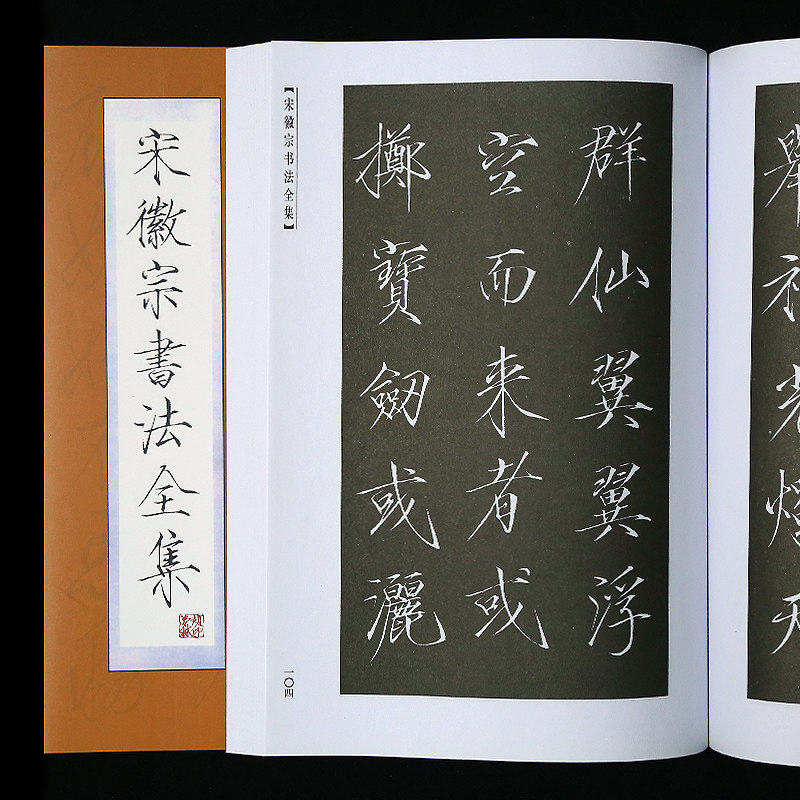 宋徽宗書法全集
【宋徽宗书法全集】
群仙翼翼浮
空而来者或
擲寶劔或灑
一〇四